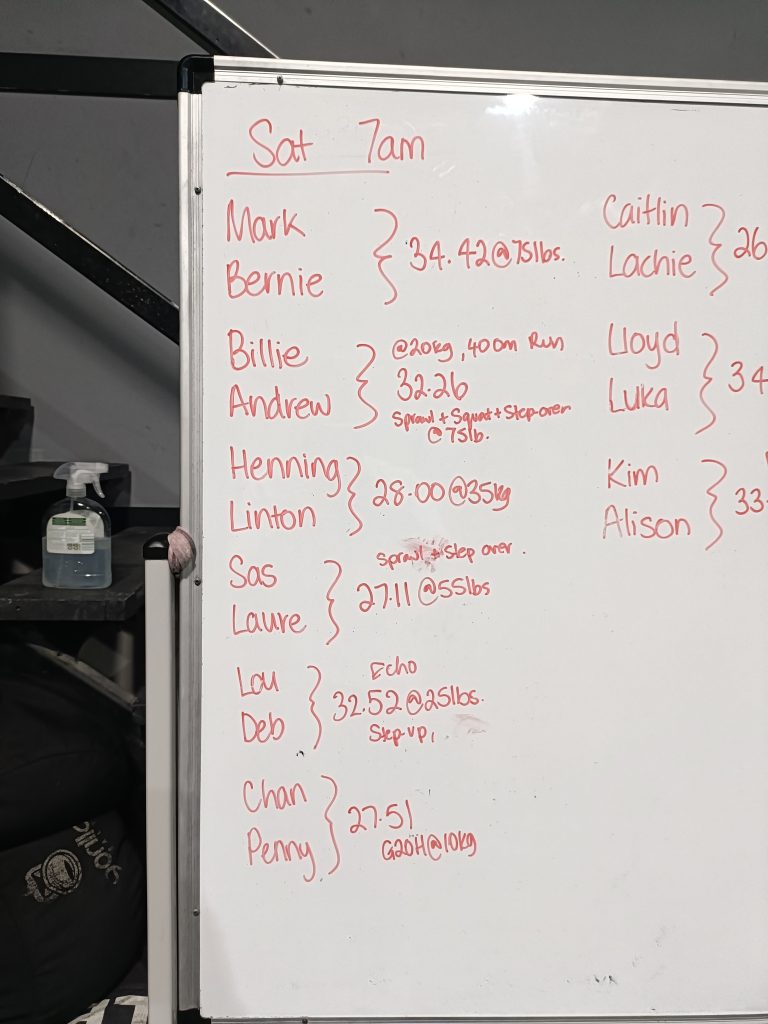 Sat 7am
Mark
Bernie
34.42@75lbs.
Billie
Andrew
@20kg, 400m Run
32.26
Sprawl + Squat + Step-over
@75lb.
Henning
Linton
28.00@35kg
Sas
Laure
Sprawl + Step over.
27.11@55lbs
Lou
Deb
Echo
32.52@25lbs.
Step-up,
Chan
Penny
27.51
G2OH@10kg
Caitlin
Lachie
26
Lloyd
Luka
34
Kim
Alison
33.